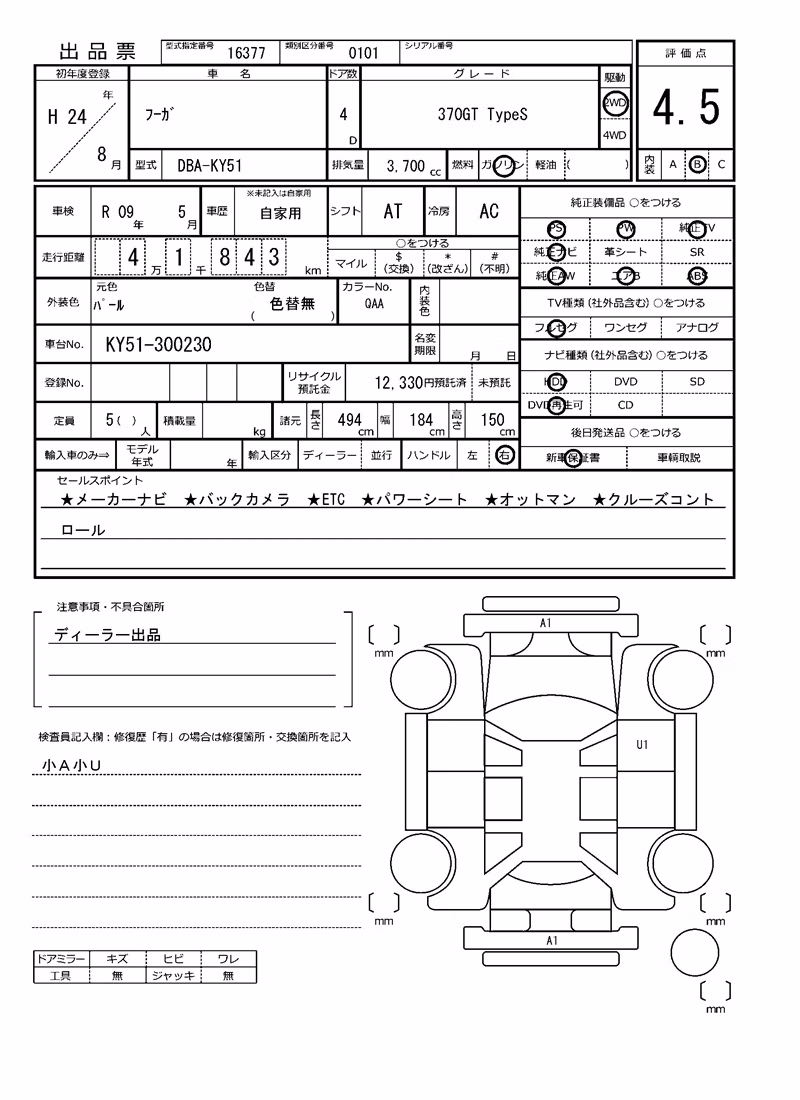 出品票 型式指定番号 16377 類別区分番号 0101 シリアル番号 評価点
初年度登録 車名 ドア数 グレード 駆動
H 24 年 8 月 フーガ 4 D 370GT TypeS 2WD 4WD 4.5
型式 DBA-KY51 排気量 3,700 cc 燃料 ガソリン 軽油 ( ) 内装 A B C
車検 R 09 年 5 月 車歴 ※未記入は自家用 自家用 シフト AT 冷房 AC
走行距離 4 万 1 千 8 4 3 km ○をつける
マイル $(交換) *(改ざん) #(不明)
外装色 元色 パール 色替 色替無 ( ) カラーNo. QAA 内装色
車台No. KY51-300230 名変期限 月 日
登録No. リサイクル預託金 12,330円預託済 未預託
定員 5( ) 人 積載量 kg 諸元 長さ 494 cm 幅 184 cm 高さ 150 cm
輸入車のみ⇒ モデル年式 年 輸入区分 ディーラー 並行 ハンドル 左 右
純正装備品 ○をつける
PS PW 純正TV
純正ナビ 革シート SR
純正AW エアB ABS
TV種類(社外品含む)○をつける
フルセグ ワンセグ アナログ
ナビ種類(社外品含む)○をつける
HDD DVD SD
DVD再生可 CD
後日発送品 ○をつける
新車保証書 車輌取説
セールスポイント
★メーカーナビ ★バックカメラ ★ETC ★パワーシート ★オットマン ★クルーズコント
ロール
注意事項・不具合箇所
ディーラー出品
検査員記入欄：修復歴「有」の場合は修復箇所・交換箇所を記入
小A小U
ドアミラー キズ ヒビ ワレ
工具 無 ジャッキ 無
A1
mm mm
U1
mm mm
A1
mm